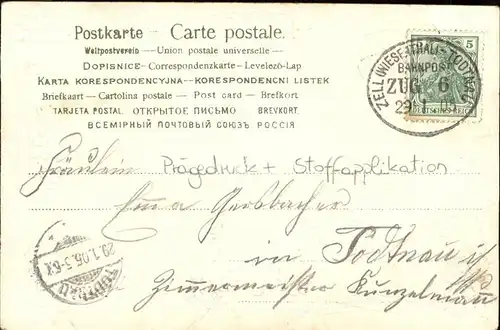 Postkarte - Carte postale.
Weltpostverein - Union postale universelle -
DOPISNICE - Correspondenzkarte - Levelező-Lap
KARTA KORESPONDENCYJNA - KORESPONDENCNI LISTEK
Briefkaart - Cartolina postale - Post card - Brefkort
TARJETA POSTAL ОТКРЫТОЕ ПИСЬМО BREVKORT
ВСЕМІРНЫЙ ПОЧТОВЫЙ СОЮЗЪ РОССІЯ
5
ZELL (WIESENTHAL)-TODTNAU
BAHNPOST
ZUG 6
29 1
Fräulein Prägedruck + Stoffapplikation
Emma Gersbacher
in Todtnau
Zimmermeister Kunzelman
TODTNAU
29.1.05.5-6N